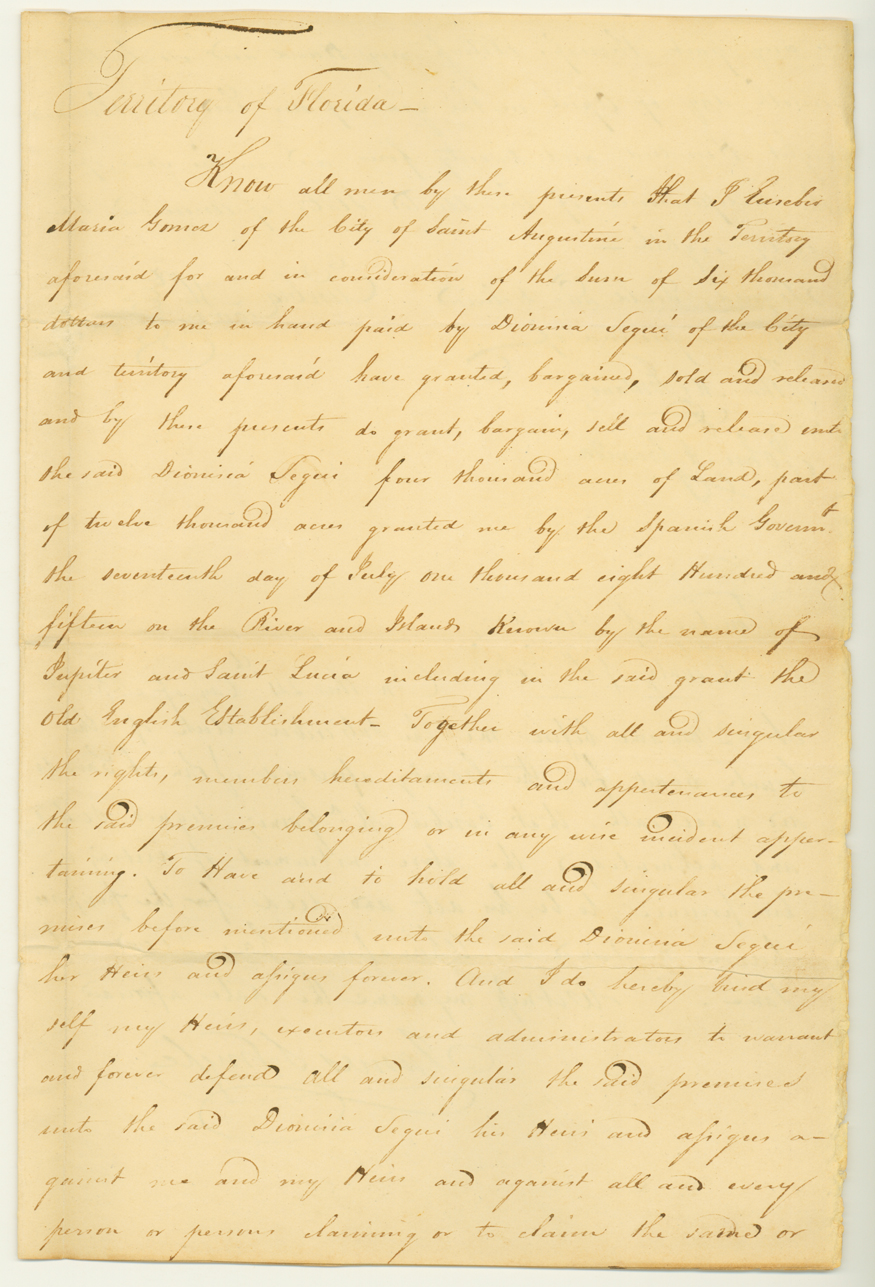 Territory of Florida —
Know all men by these presents that I Eusebio
Maria Gomez of the City of Saint Augustine in the Territory
aforesaid for and in consideration of the sum of six thousand
dollars to me in hand paid by Dionisia Segui of the City
and territory aforesaid have granted, bargained, sold and released
and by these presents do grant, bargain, sell and release unto
the said Dionisia Segui four thousand acres of Land, part
of twelve thousand acres granted me by the Spanish Governmt.
the seventeenth day of July one thousand eight Hundred and
fifteen on the River and Islands Known by the name of
Jupiter and Saint Lucia including in the said grant the
Old English Establishment – Together with all and singular
the rights, members hereditaments and appertenances to
the said premises belonging or in any wise incident apper-
taining. To Have and to hold all and singular the pre-
mises before mentioned unto the said Dionisia Segui
her Heirs and assigns forever. And I do hereby bind my
self my Heirs, executors and administrators to warrant
and forever defend All and singular the said premises
unto the said Dionisia Segui his Heirs and assigns a-
gainst me and my Heirs and against all and every
person or persons claiming or to claim the same or